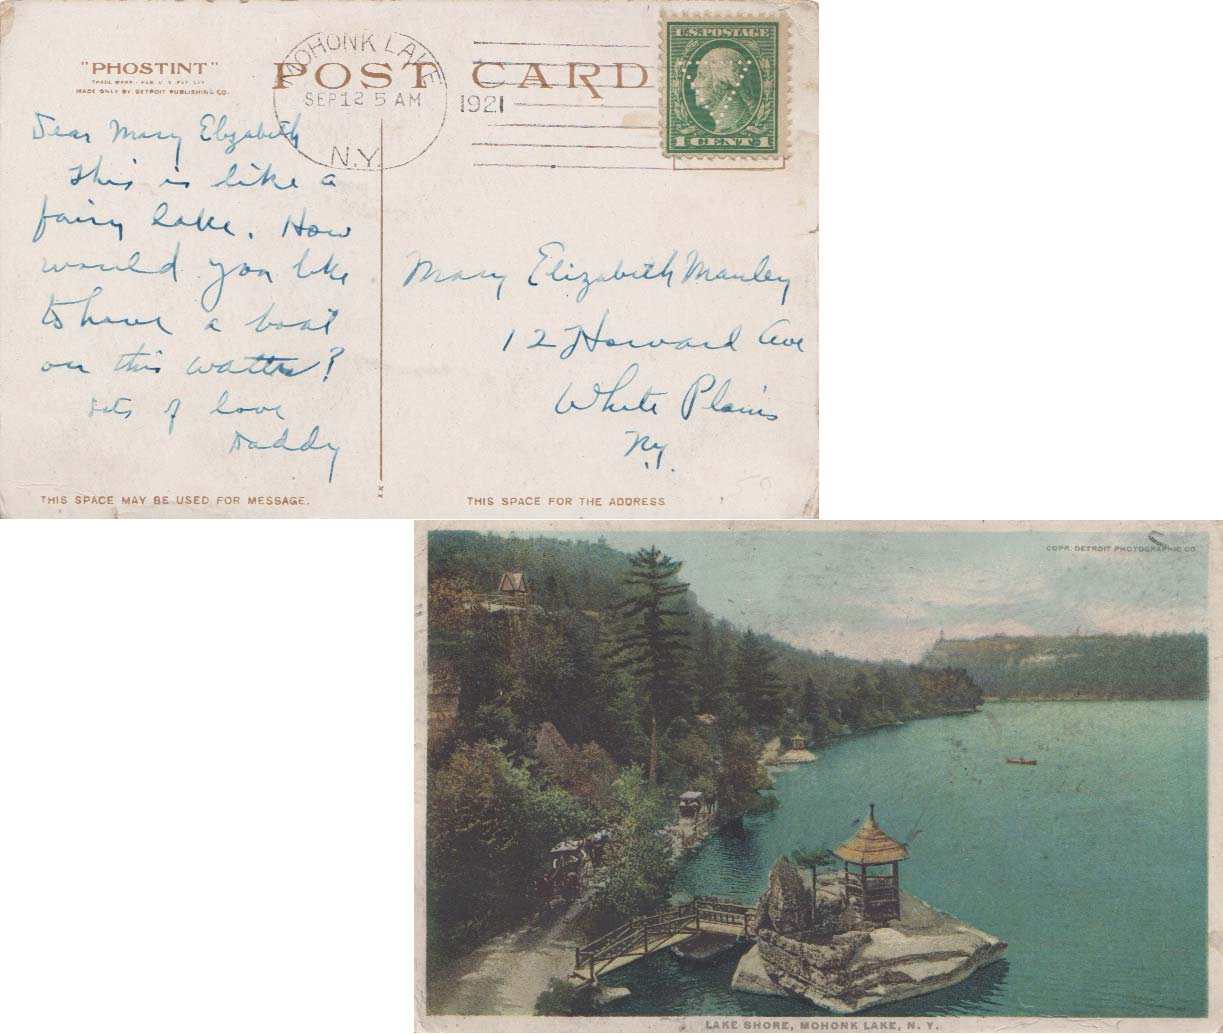 "PHOSTINT"
TRADE MARK - REG. U. S. PAT. OFF.
MADE ONLY BY DETROIT PUBLISHING CO.
POST CARD
MOHONK LAKE
SEP 12 5 AM
1921
N.Y.
U.S. POSTAGE
1 CENT 1
Dear Mary Elizabeth
This is like a
fairy lake. How
would you like
to have a boat
on this water?
of love
Daddy
Mary Elizabeth Manley
12 Howard Ave
White Plains
N.Y.
THIS SPACE MAY BE USED FOR MESSAGE.
XX
THIS SPACE FOR THE ADDRESS
50
COPR. DETROIT PHOTOGRAPHIC CO.
LAKE SHORE, MOHONK LAKE, N. Y.